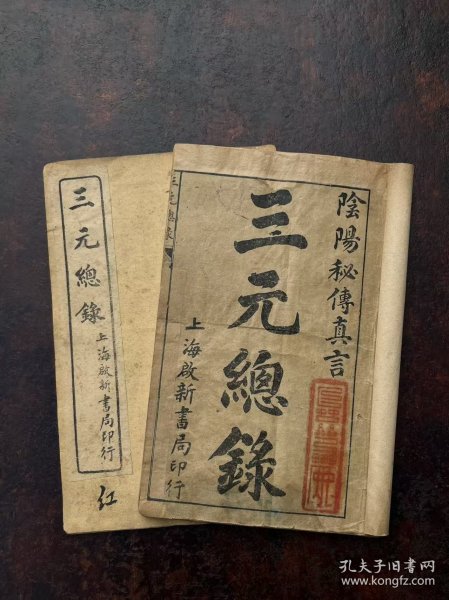 陰陽秘傳真言
三元總錄
上海啟新書局印行
三元總錄
上海啟新書局印行
紅
孔夫子旧书网
www.kongfz.com